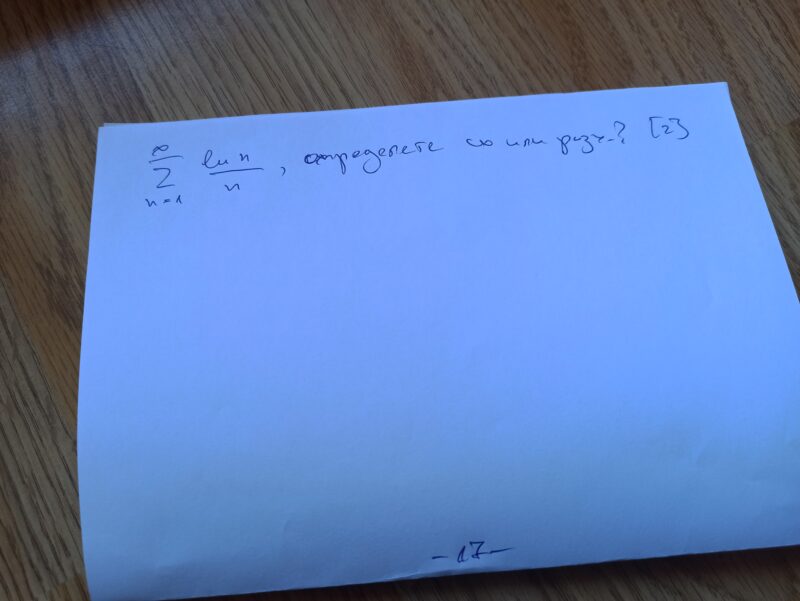 ∞
∑ ln n / n , определете сх или разх.? [2}
n=1
-17-